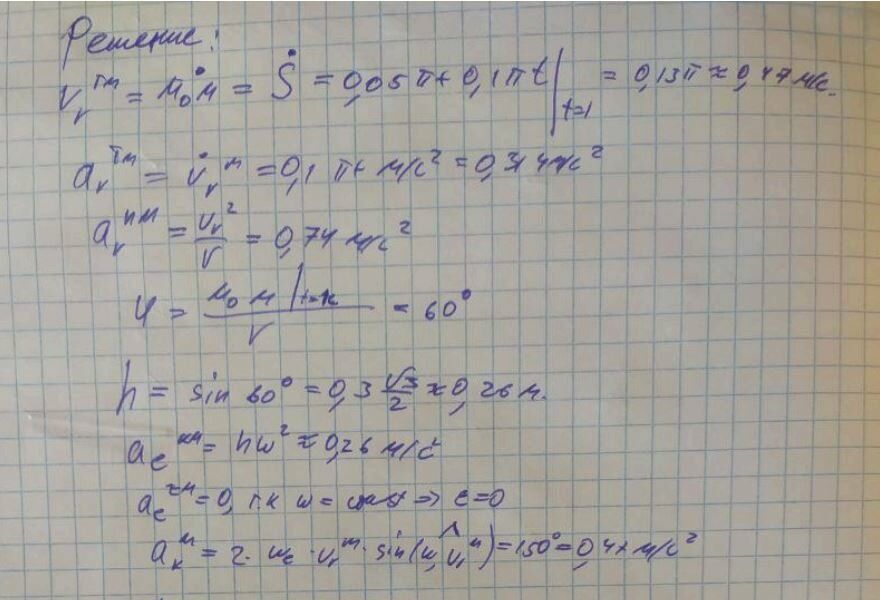 Решение:
V_r^τм = M₀M˙ = Ṡ = 0,05π + 0,1πt |t=1 = 0,13π ≈ 0,47 м/с.
a_r^τм = V̇_r^м = 0,1 π м/с² = 0,314 м/с²
a_r^нм = V_r²/r = 0,74 м/с²
φ = M₀M|t=1с / r = 60°
h = sin 60° = 0,3 √3/2 ≈ 0,26 м.
a_e^нм = hω² ≈ 0,26 м/с²
a_e^τм = 0, т.к ω = const ⇒ ε=0
a_к^м = 2·ω_e·V_r^м·sin(ω,^V_r^м) = 150° = 0,47 м/с²